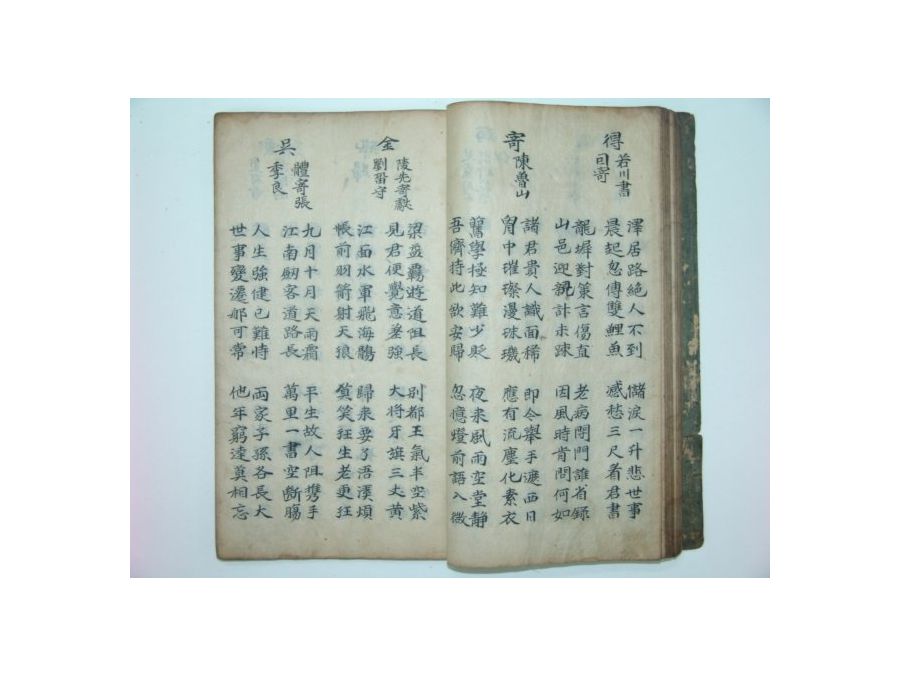 得若川書囙寄
澤居路絶人不到
晨起忽傳雙鯉魚
儲淚一升悲世事
慼愁三尺着君書
龍墀對策言傷直
山邑迎親計未踈
老病閉門誰省録
因風時肯問何如
寄陳魯山
諸君貴人識面稀
胷中璀璨漫珠璣
即今舉手遮西日
應有流塵化素衣
鶩學極知難少貶
吾儕持此欲安歸
夜來風雨空堂静
忽憶燈前語入微
金陵先寄獻劉留守
梁益覊遊道阻長
見君便覺意差強
別都王氣半空紫
大將牙旗三丈黄
江面水軍飛海鶻
帳前羽箭射天狼
歸來要了浯溪頌
莫笑狂生老更狂
吳體寄張季良
九月十月天雨霜
江南劒客道路長
平生故人阻携手
萬里一書空斷膓
人生強健已難恃
世事變遷那可常
兩家子孫各長大
他年窮達莫相忘